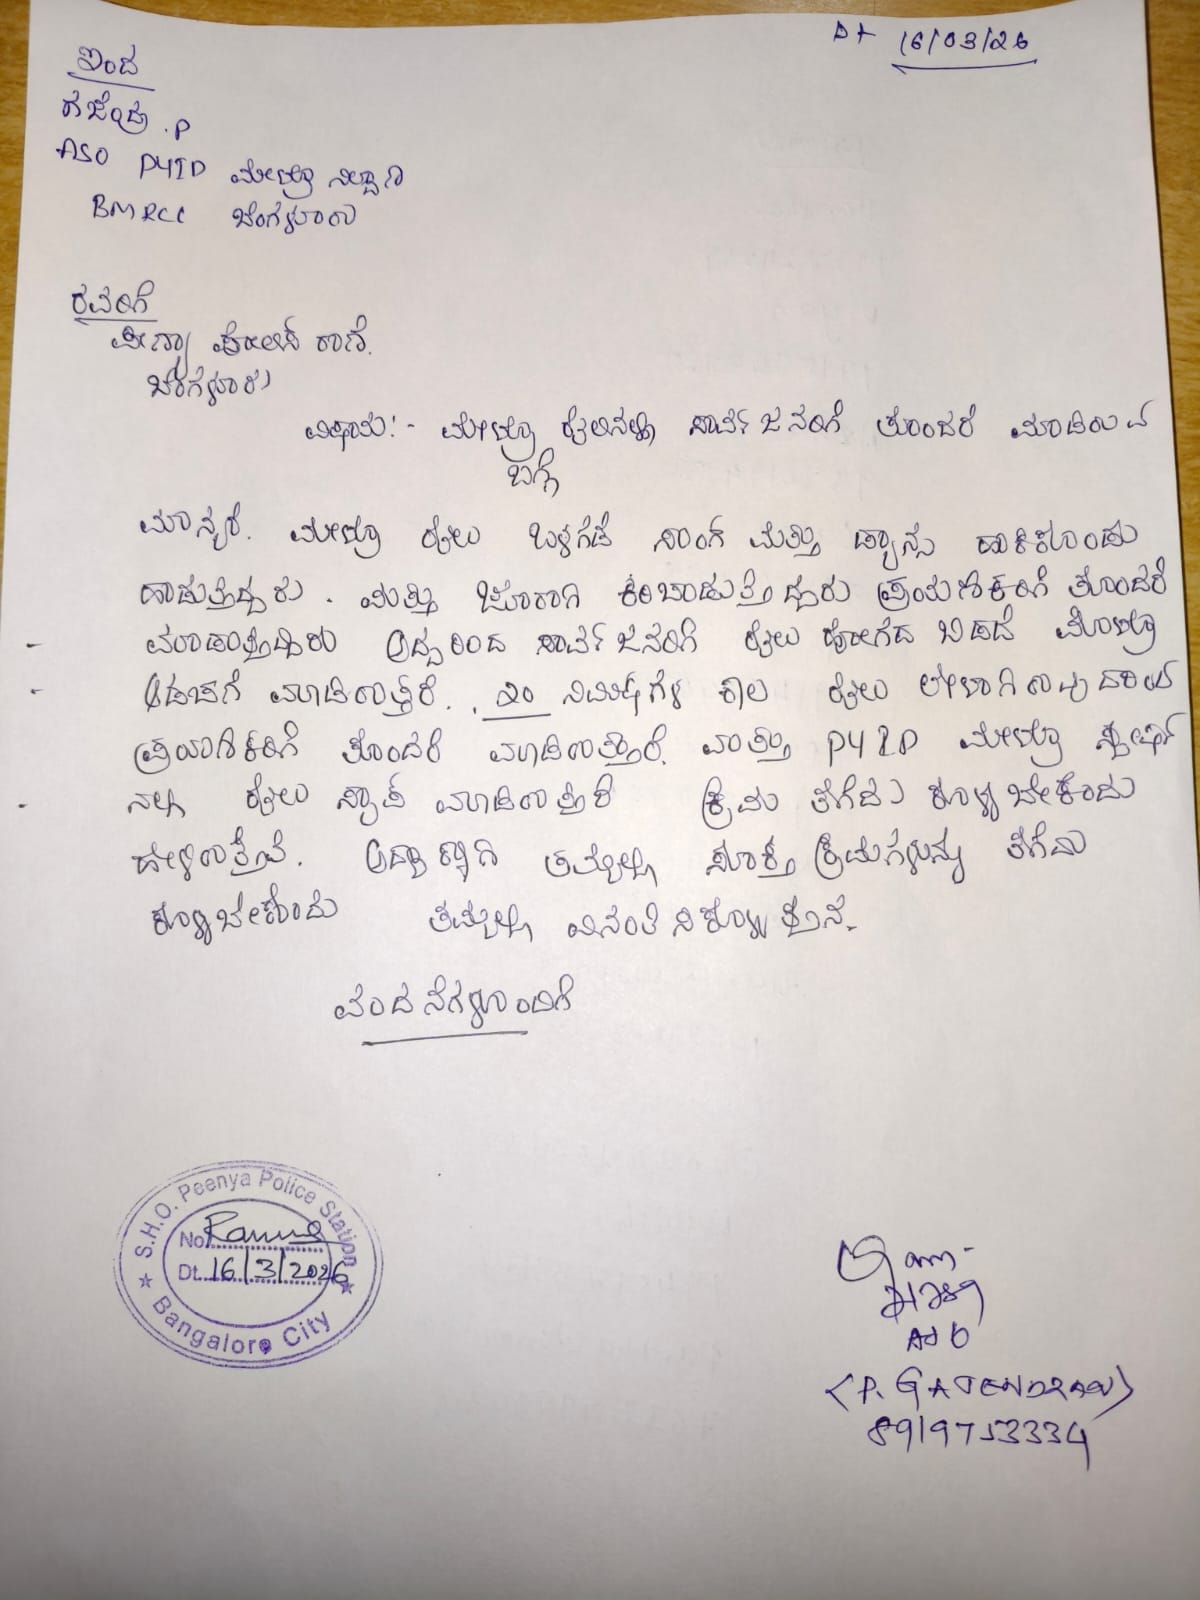 Dt 16/03/26
ಇಂದ
ಗಜೇಂದ್ರ .P
ASO PYID ಮೇಟ್ರೊ ನಿಲ್ದಾಣ
BMRCL ಬೆಂಗಳೂರು
ರವರಿಗೆ
ಪೀಣ್ಯಾ ಪೋಲಿಸ್ ಠಾಣೆ.
ಬೆಂಗಳೂರು
ವಿಷಯ:- ಮೇಟ್ರೊ ರೈಲಿನಲ್ಲಿ ಸಾರ್ವಜನರಿಗೆ ತೊಂದರೆ ಮಾಡಿರುವ
ಬಗ್ಗೆ
ಮಾನ್ಯರೆ. ಮೇಟ್ರೊ ರೈಲು ಒಳಗಡೆ ಸಾಂಗ್ ಮತ್ತು ಡ್ಯಾನ್ಸ ಹಾಕಿಕೊಂಡು
ಹಾಡುತ್ತಿದ್ದರು . ಮತ್ತು ಜೋರಾಗಿ ಕಿರಿಚಾಡುತ್ತಿದ್ದರು ಪ್ರಯಣಿಕರಿಗೆ ತೊಂದರೆ
ಮಾಡುತ್ತಿದ್ದರು ಆದ್ದರಿಂದ ಸಾರ್ವಜನರಿಗೆ ರೈಲು ಹೋಗದ ಬಿಡದೆ ಮೇಟ್ರೊ
ಅಡಚಣೆ ಮಾಡಿರುತ್ತಾರೆ. , 20 ನಿಮಿಷಗಳ ಕಾಲ ರೈಲು ಲೇಟಾಗಿರುವುದರಿಂದ
ಪ್ರಯಾಣಿಕರಿಗೆ ತೊಂದರೆ ಮಾಡಿರುತ್ತಾರೆ. ಮತ್ತು PYID ಮೇಟ್ರೊ ಸ್ಟೇಷನ್
ನಲ್ಲಿ ರೈಲು ಸ್ಟಾಪ್ ಮಾಡಿರುತ್ತಾರೆ ಕ್ರಿಮ ತೆಗೆದು ಕೊಳ್ಳಬೇಕೆಂದು
ಹೇಳಿರುತ್ತೇವೆ. ಆದ್ದಾಕ್ಕಾಗಿ ತಮ್ಮಲ್ಲಿ ಸೂಕ್ತ ಕ್ರಿಮಗಳನ್ನು ತೆಗೆದು
ಕೊಳ್ಳಬೇಕೆಂದು ತಮ್ಮಲ್ಲಿ ವಿನಂತಿಸಿಕೊಳ್ಳುತ್ತೇನೆ.
ವಂದನೆಗಳೊಂದಿಗೆ
S.H.O. Peenya Police Station
No
Dt. 16/3/2026
Bangalore City
ASO
(P. GAJENDRAN)
8919753334